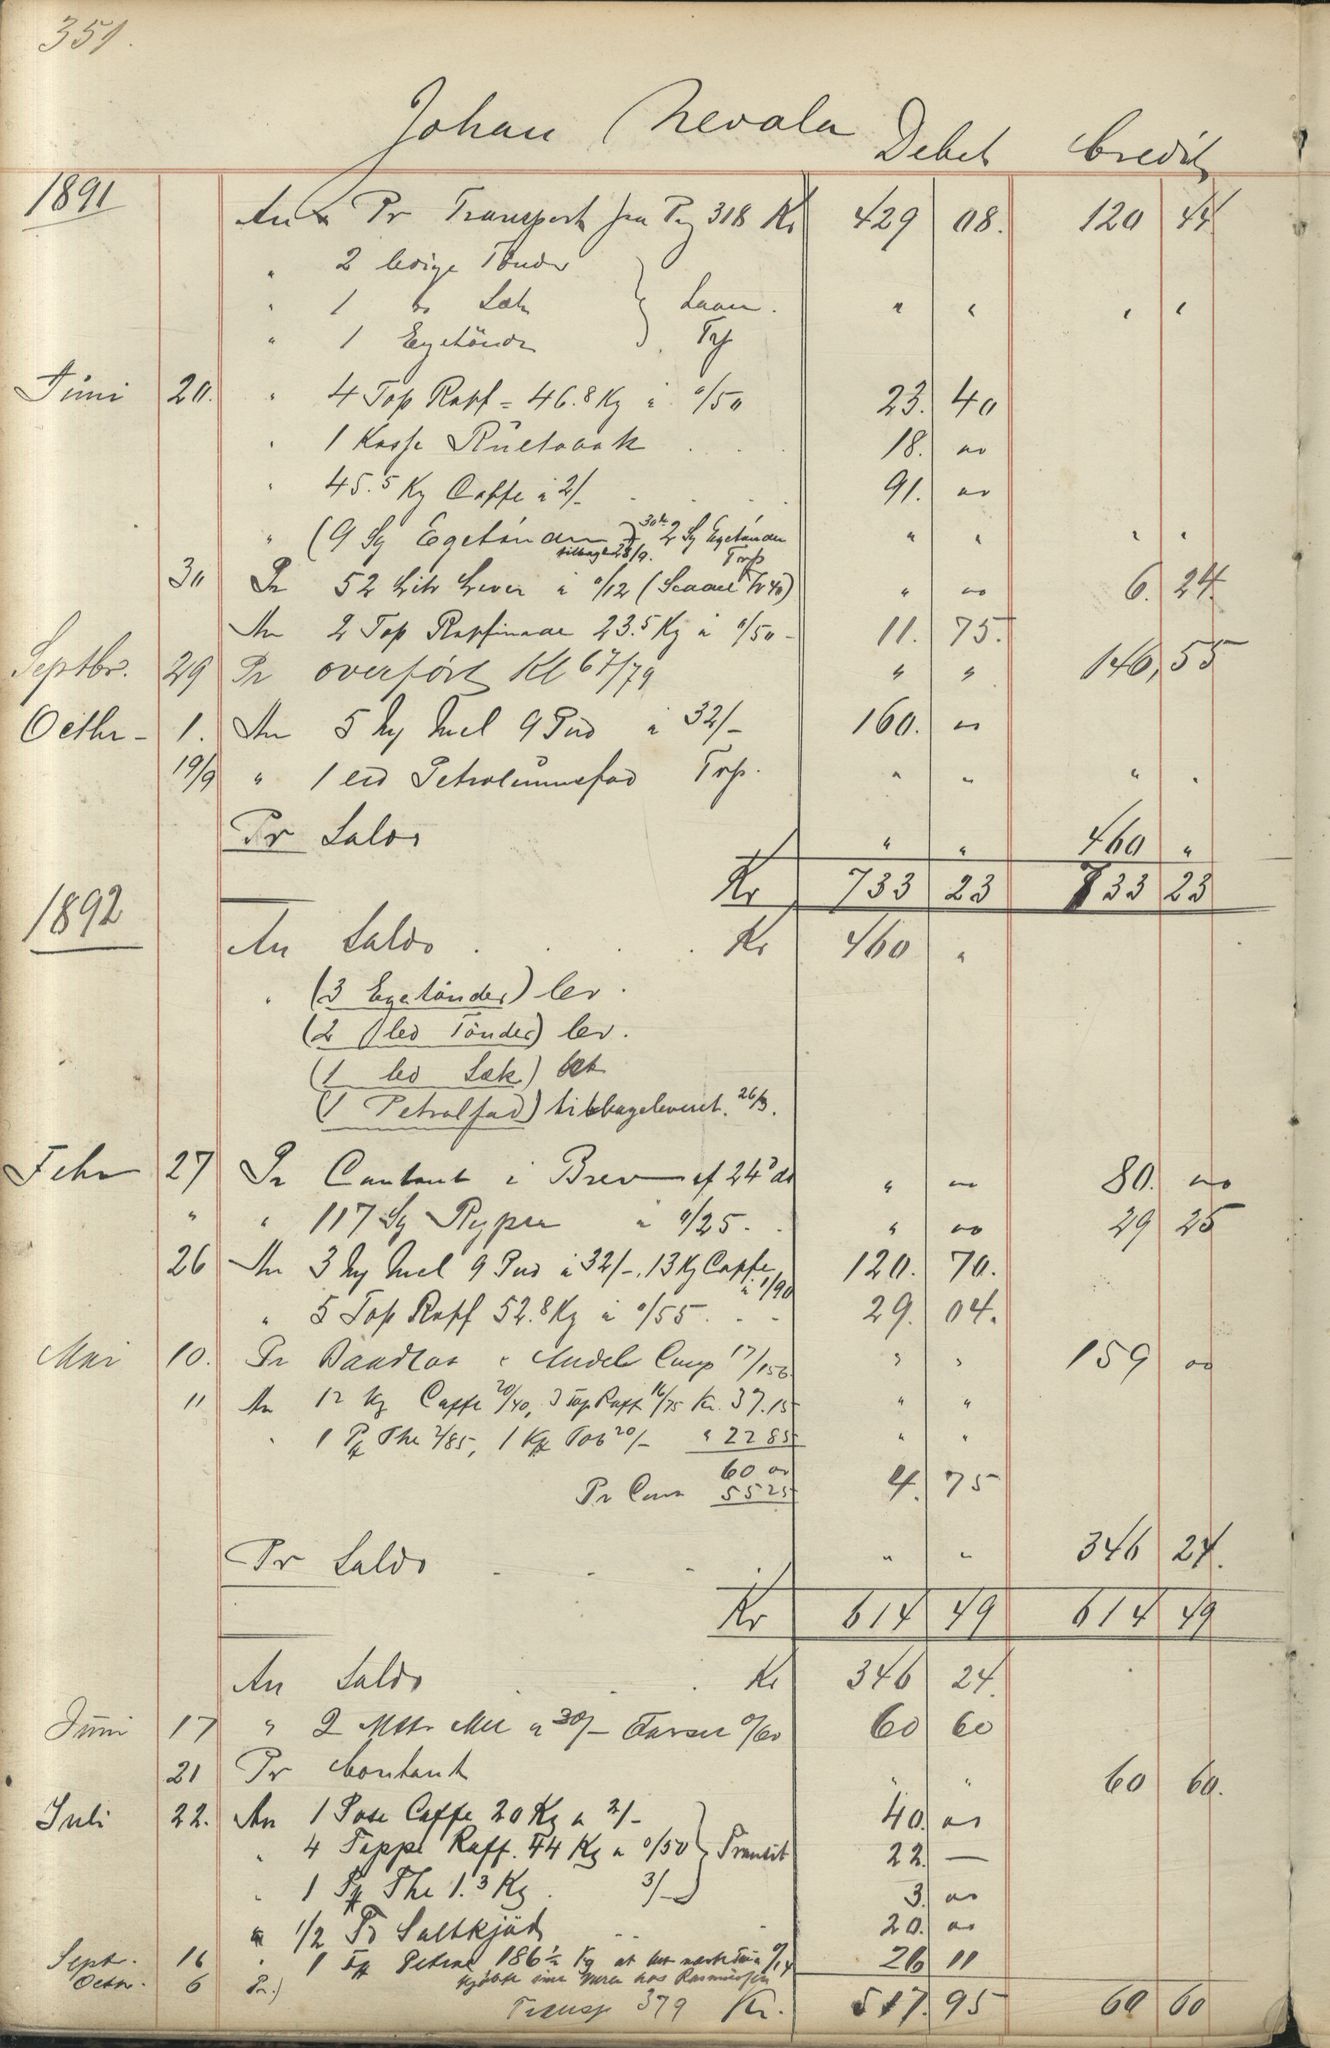 351.
Johan Nevala Debet Credit
1891 An & Pr Transport fra Pag 318 Kr 429 08. 120 44
" 2 ledige Tønder
" 1 do Sæk } Laan. " " " "
" 1 Egetønde Trp
Juni 20. " 4 Top Raff = 46.8 Kg a 0/50 23. 40
" 1 Kasse Rultobak . . . 18. 00
" 45.5 Kg Caffe a 2/- . . . 91. 00
" (9 Sg Egetønder) 2 Sg Egetønder " " " "
tilbagel 28/9. Trp
30 Pr 52 Litr Lever a 0/12 " 00 6. 24
An 2 Top Raffinade 23.5 Kg a 0/50 - 11. 75.
Septbr. 29 Pr overført Kl 67/79 " " 146, 55
Octbr - 1. An 5 Mg Mel 9 Pud a 32/- 160. 00
19/9 " 1 led Petroleumsfad Trp. " " " "
Pr Saldo " " 460 "
Kr 733 23 733 23
1892
An Saldo . . . . Kr 460 "
" (3 Egetønder) lev.
(2 led Tønder) lev.
(1 led Sæk)
(1 Petrolfad) tilbageleveret. 26/3.
Febr 27 Pr Contant i Brev af 24de ds " 00 80. 00
" " 117 Sg Ryper a 0/25 - . " 00 29 25
26 An 3 Mg Mel 9 Pud a 32/-, 13 Kg Caffe 120. 70.
a 1/90
" 5 Top Raff 52.8 Kg a 0/55 . . - 29. 04.
Mai 10. Pr Andels Comp 17/156 " " 159 00
11 An 12 Kg Caffe 20/40, 3 Top Raff 16/75 Kr. 37.15 " "
" 1 Pk The 2/85, 1 Kg Tob 20/- " 22 85 " "
60 00
Pr Cont 55 25 4. 75
Pr Saldo . . . . " " 346 24.
Kr 614 49 614 49
An Saldo . . Kr 346 24.
Juni 17 " 2 Mtt Mel a 30/- 0/60 60 60
21 Pr Contant " " 60 60.
Juli 22. An 1 Pose Caffe 20 Kg a 2/- 40. 00
" 4 Toppe Raff. 44 Kg a 0/50 } Transit 22. —
" 1 Pk The 1.3 Kg . 3/- 3. 00
" 1/2 Td Saltkjød . . . 20. 00
Septr. 16 " 1 Fd Petrol 186 1/2 Kg 0/14 26 11
Octbr. 6 Pr.) kjøbte sine Varer hos Rasmussen
Transp 379 Kr. 517. 95 60 60